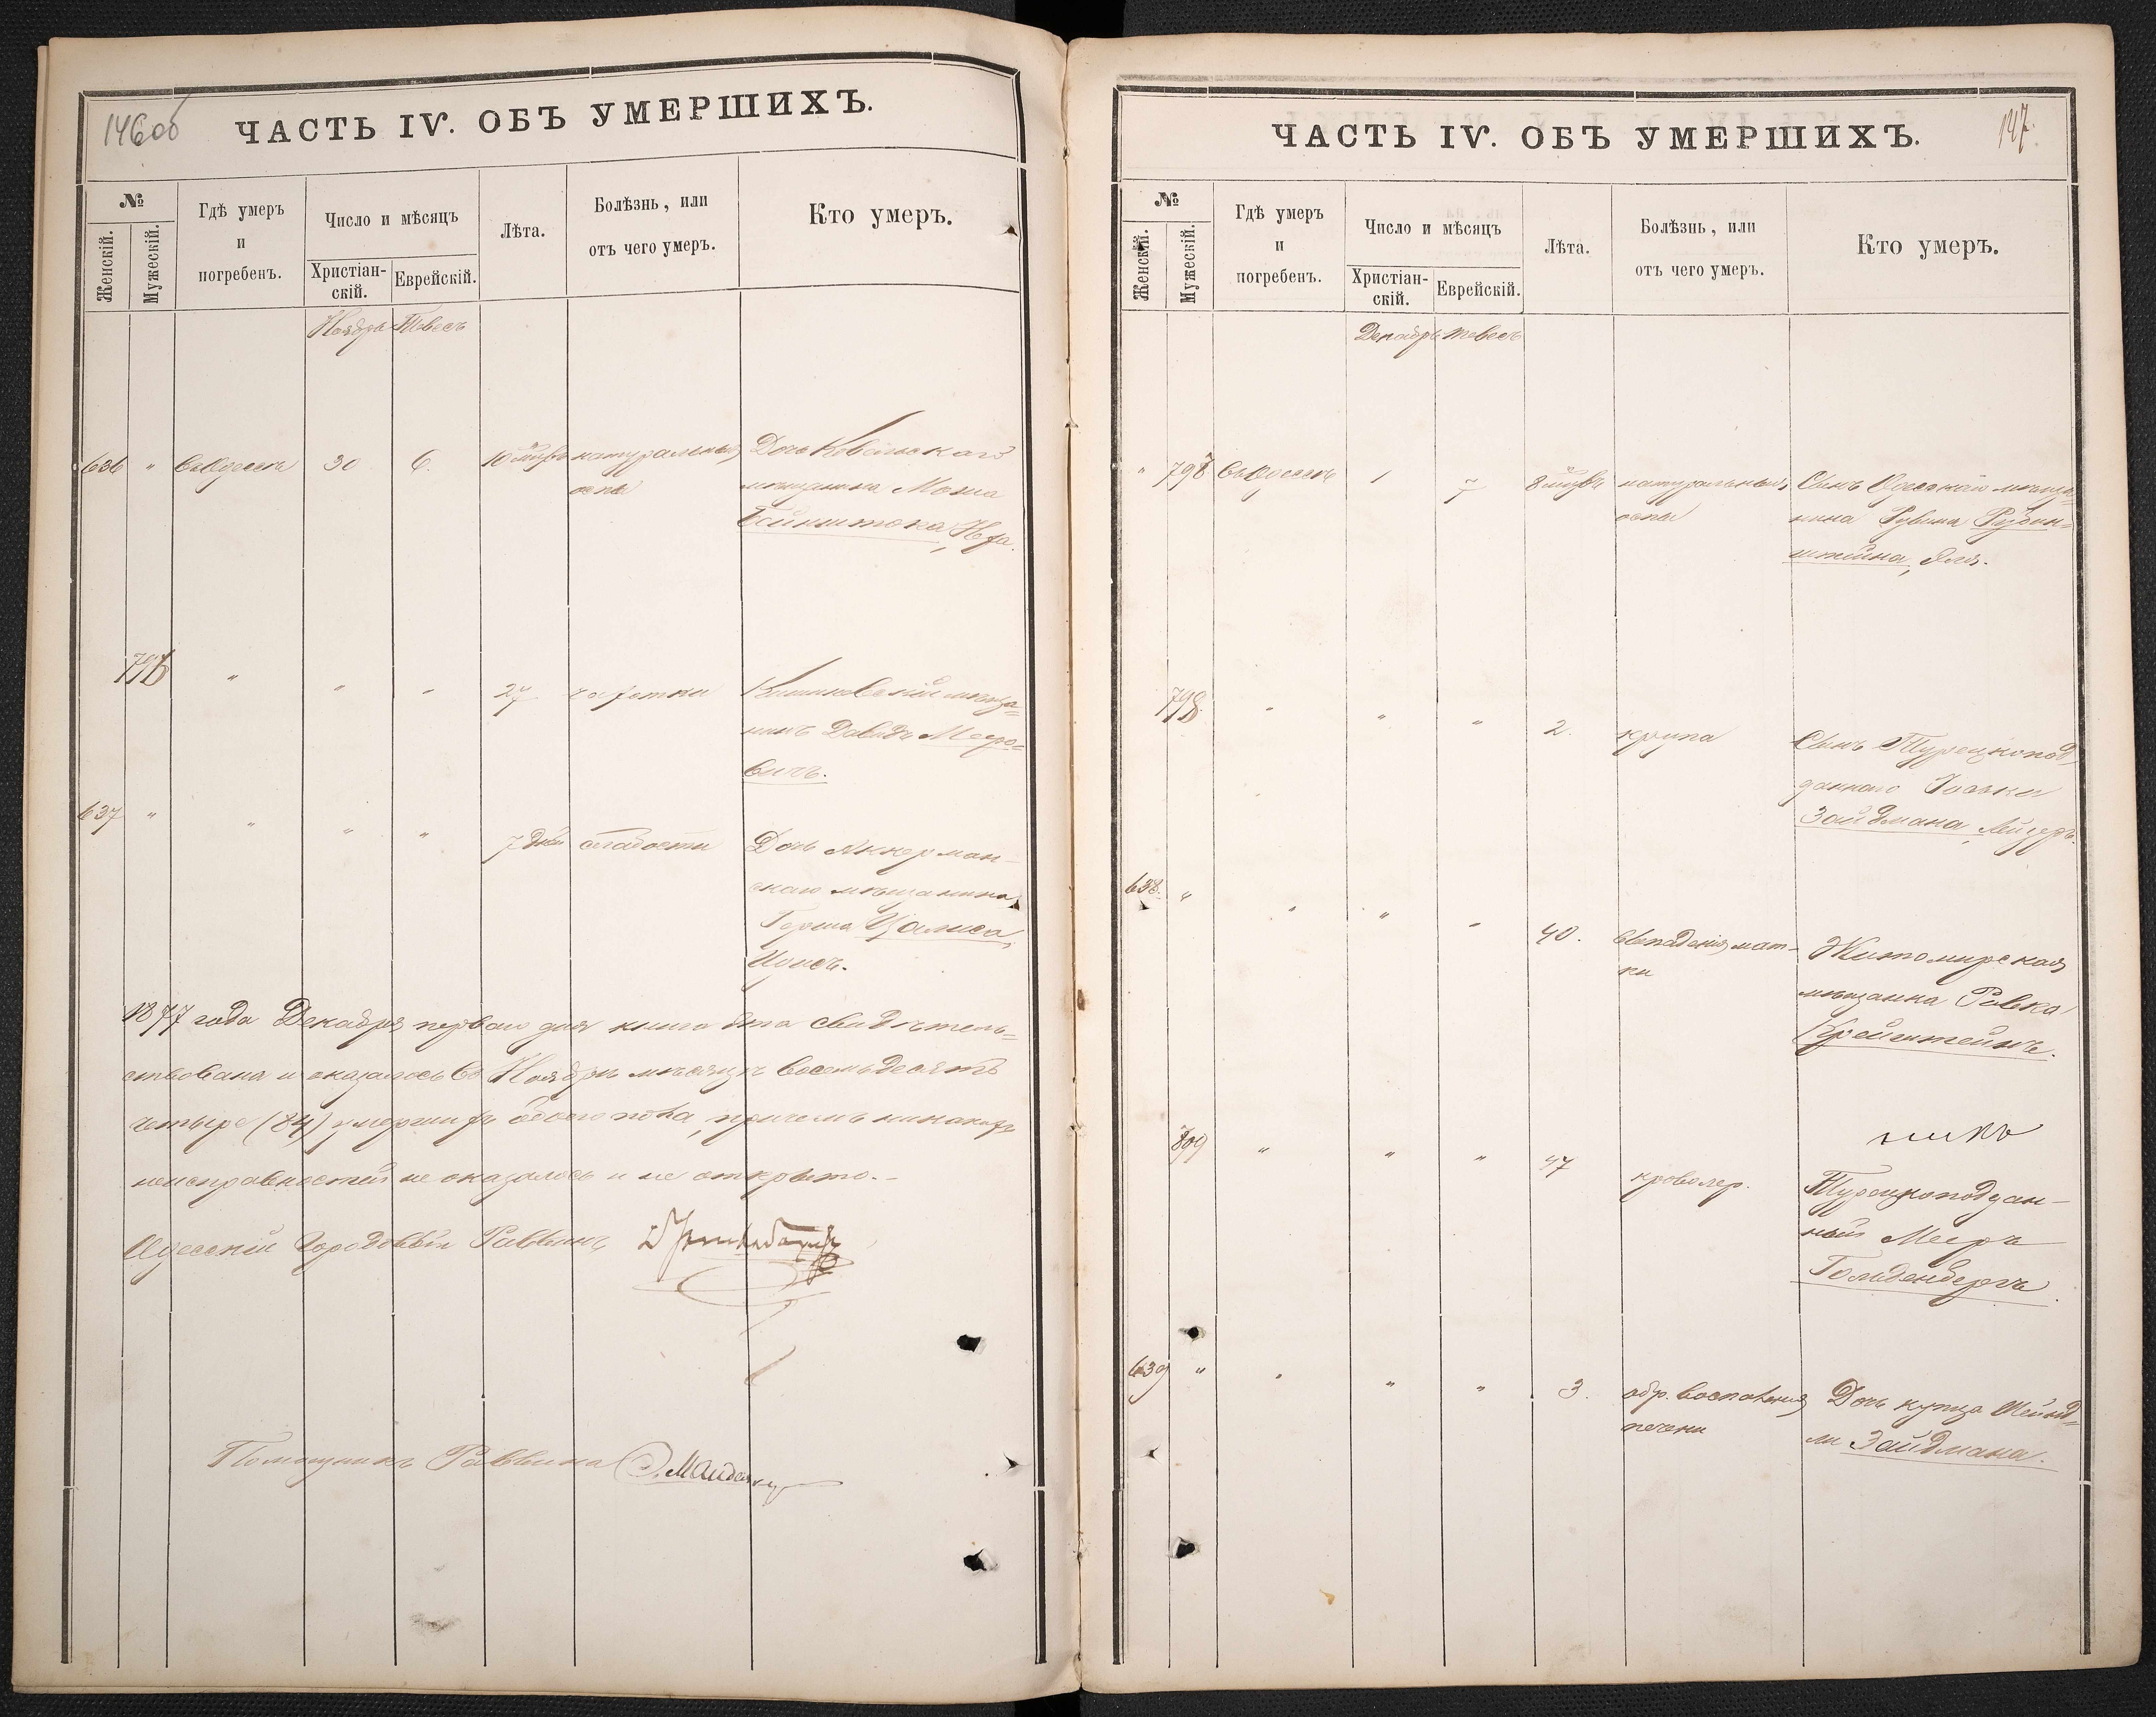 146об
ЧАСТЬ IV. ОБЪ УМЕРШИХЪ.
№
Женскій.
Мужескій.
Гдѣ умеръ
и
погребенъ.
Число и мѣсяцъ
Христіан-
скій.
Еврейскій.
Лѣта.
Болѣзнь, или
отъ чего умеръ.
Кто умеръ.
Ноябрь Тевесъ
636 " въ Одессѣ 30 6. 10 натуральныя Дочь Ковельскаго
оспы мѣщанина
Вайнштока,
796 " " " 27 чахотки Кишиневскій мѣща-
нинъ Давидъ Мееро-
вичъ.
637 " " " " 7 дней слабости Дочь Аккерман-
скаго мѣщанина
Герша
1877 года Декабря перваго дня книга эта свидѣтель-
ствована и оказалось въ Ноябрѣ мѣсяцѣ восемьдесятъ
четыре (84) умершихъ обоего пола, причемъ никакихъ
неисправностей не оказалось и не открыто.-
Одесскій Городовой Раввинъ
Помощникъ Раввина
147.
ЧАСТЬ IV. ОБЪ УМЕРШИХЪ.
№
Женскій.
Мужескій.
Гдѣ умеръ
и
погребенъ.
Число и мѣсяцъ
Христіан-
скій.
Еврейскій.
Лѣта.
Болѣзнь, или
отъ чего умеръ.
Кто умеръ.
Декабрь Тевесъ
" 797 въ Одессѣ 1 7 8 натуральныя Сынъ Одесскаго мѣща-
оспы нина Рувина Рубин-
штейна,
798 " " " 2. крупа Сынъ Турецкопод-
даннаго Иоськи
Зайдмана, Лейзеръ.
638. " " " " 40. выпаденія мат- Житомирская
ки мѣщанка Ривка
Крейнштейнъ.
" " " 47 кроволер. Турецкоподдан-
ный Мееръ
Гольденбергъ.
639 " " " " 3. воспаленія Дочь купца
печени Зайдмана.